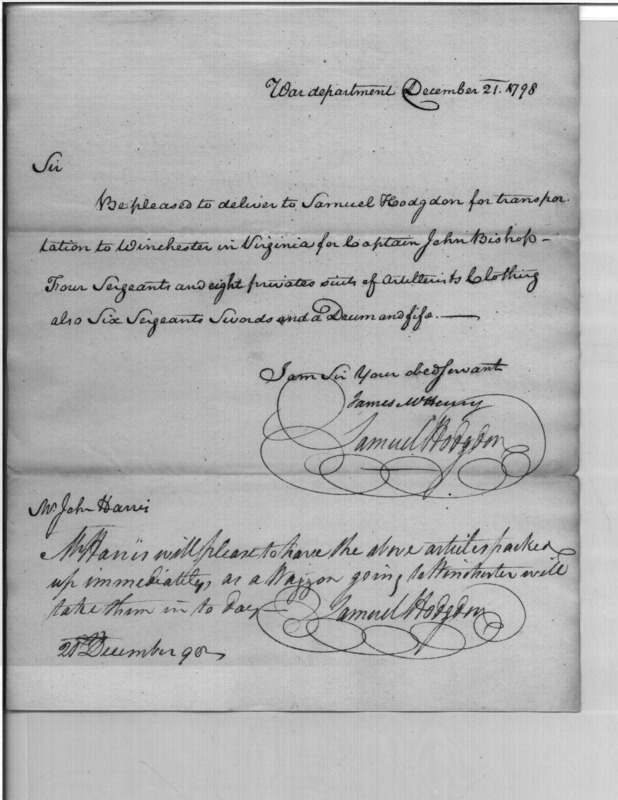 War department December 21. 1798
Sir
Be pleased to deliver to Samuel Hodgdon for transpor-
tation to Winchester in Virginia for Captain John Bishop -
Four Sergeants and eight privates suits of Artillerists Clothing
also Six Sergeants Swords and a Drum and fife. —
I am Sir Your obed Servant
James McHenry
Samuel Hodgdon
Mr John Harris
Mr Harris will please to have the above articles packed
up immediately, as a Waggon going to Winchester will
take them in to day
Samuel Hodgdon
21st December 98